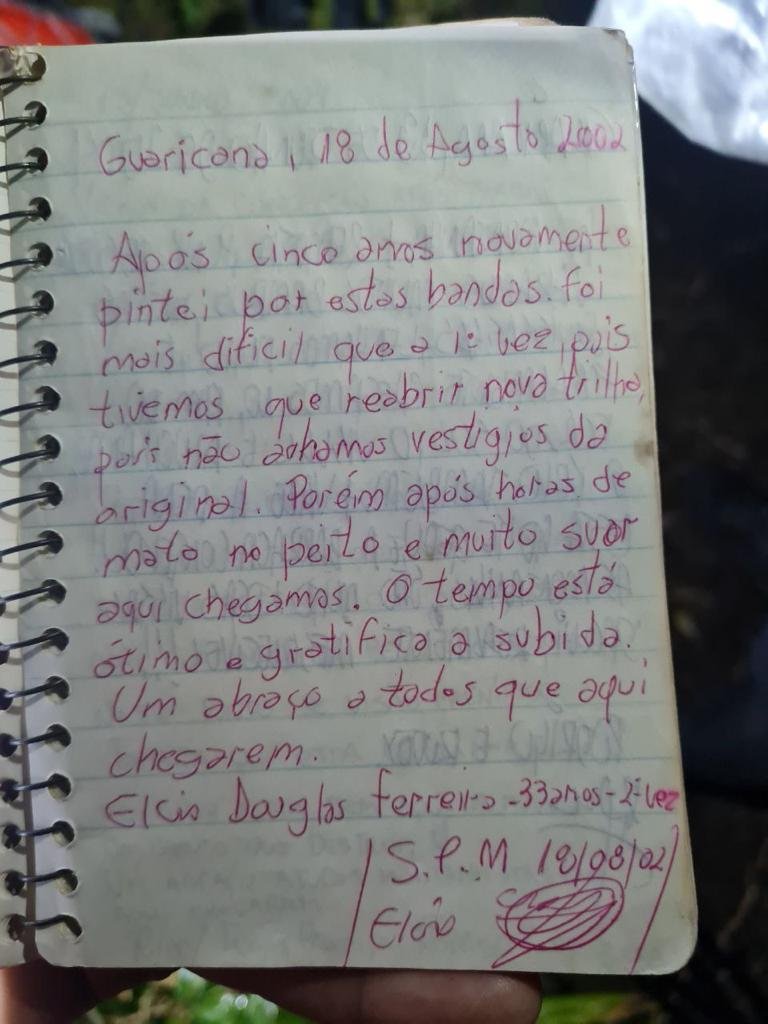 Guaricana, 18 de Agosto 2002
Após cinco anos novamente
pintei por estas bandas. foi
mais dificil que a 1ª vez, pois
tivemos que reabrir nova trilha,
pois não achamos vestigios da
original. Porém após horas de
mato no peito e muito suor
aqui chegamos. O tempo está
ótimo e gratifica a subida.
Um abraço a todos que aqui
chegarem.
Elcio Douglas Ferreira - 33 anos - 2ª vez
S.P.M 18/08/02
Elcio